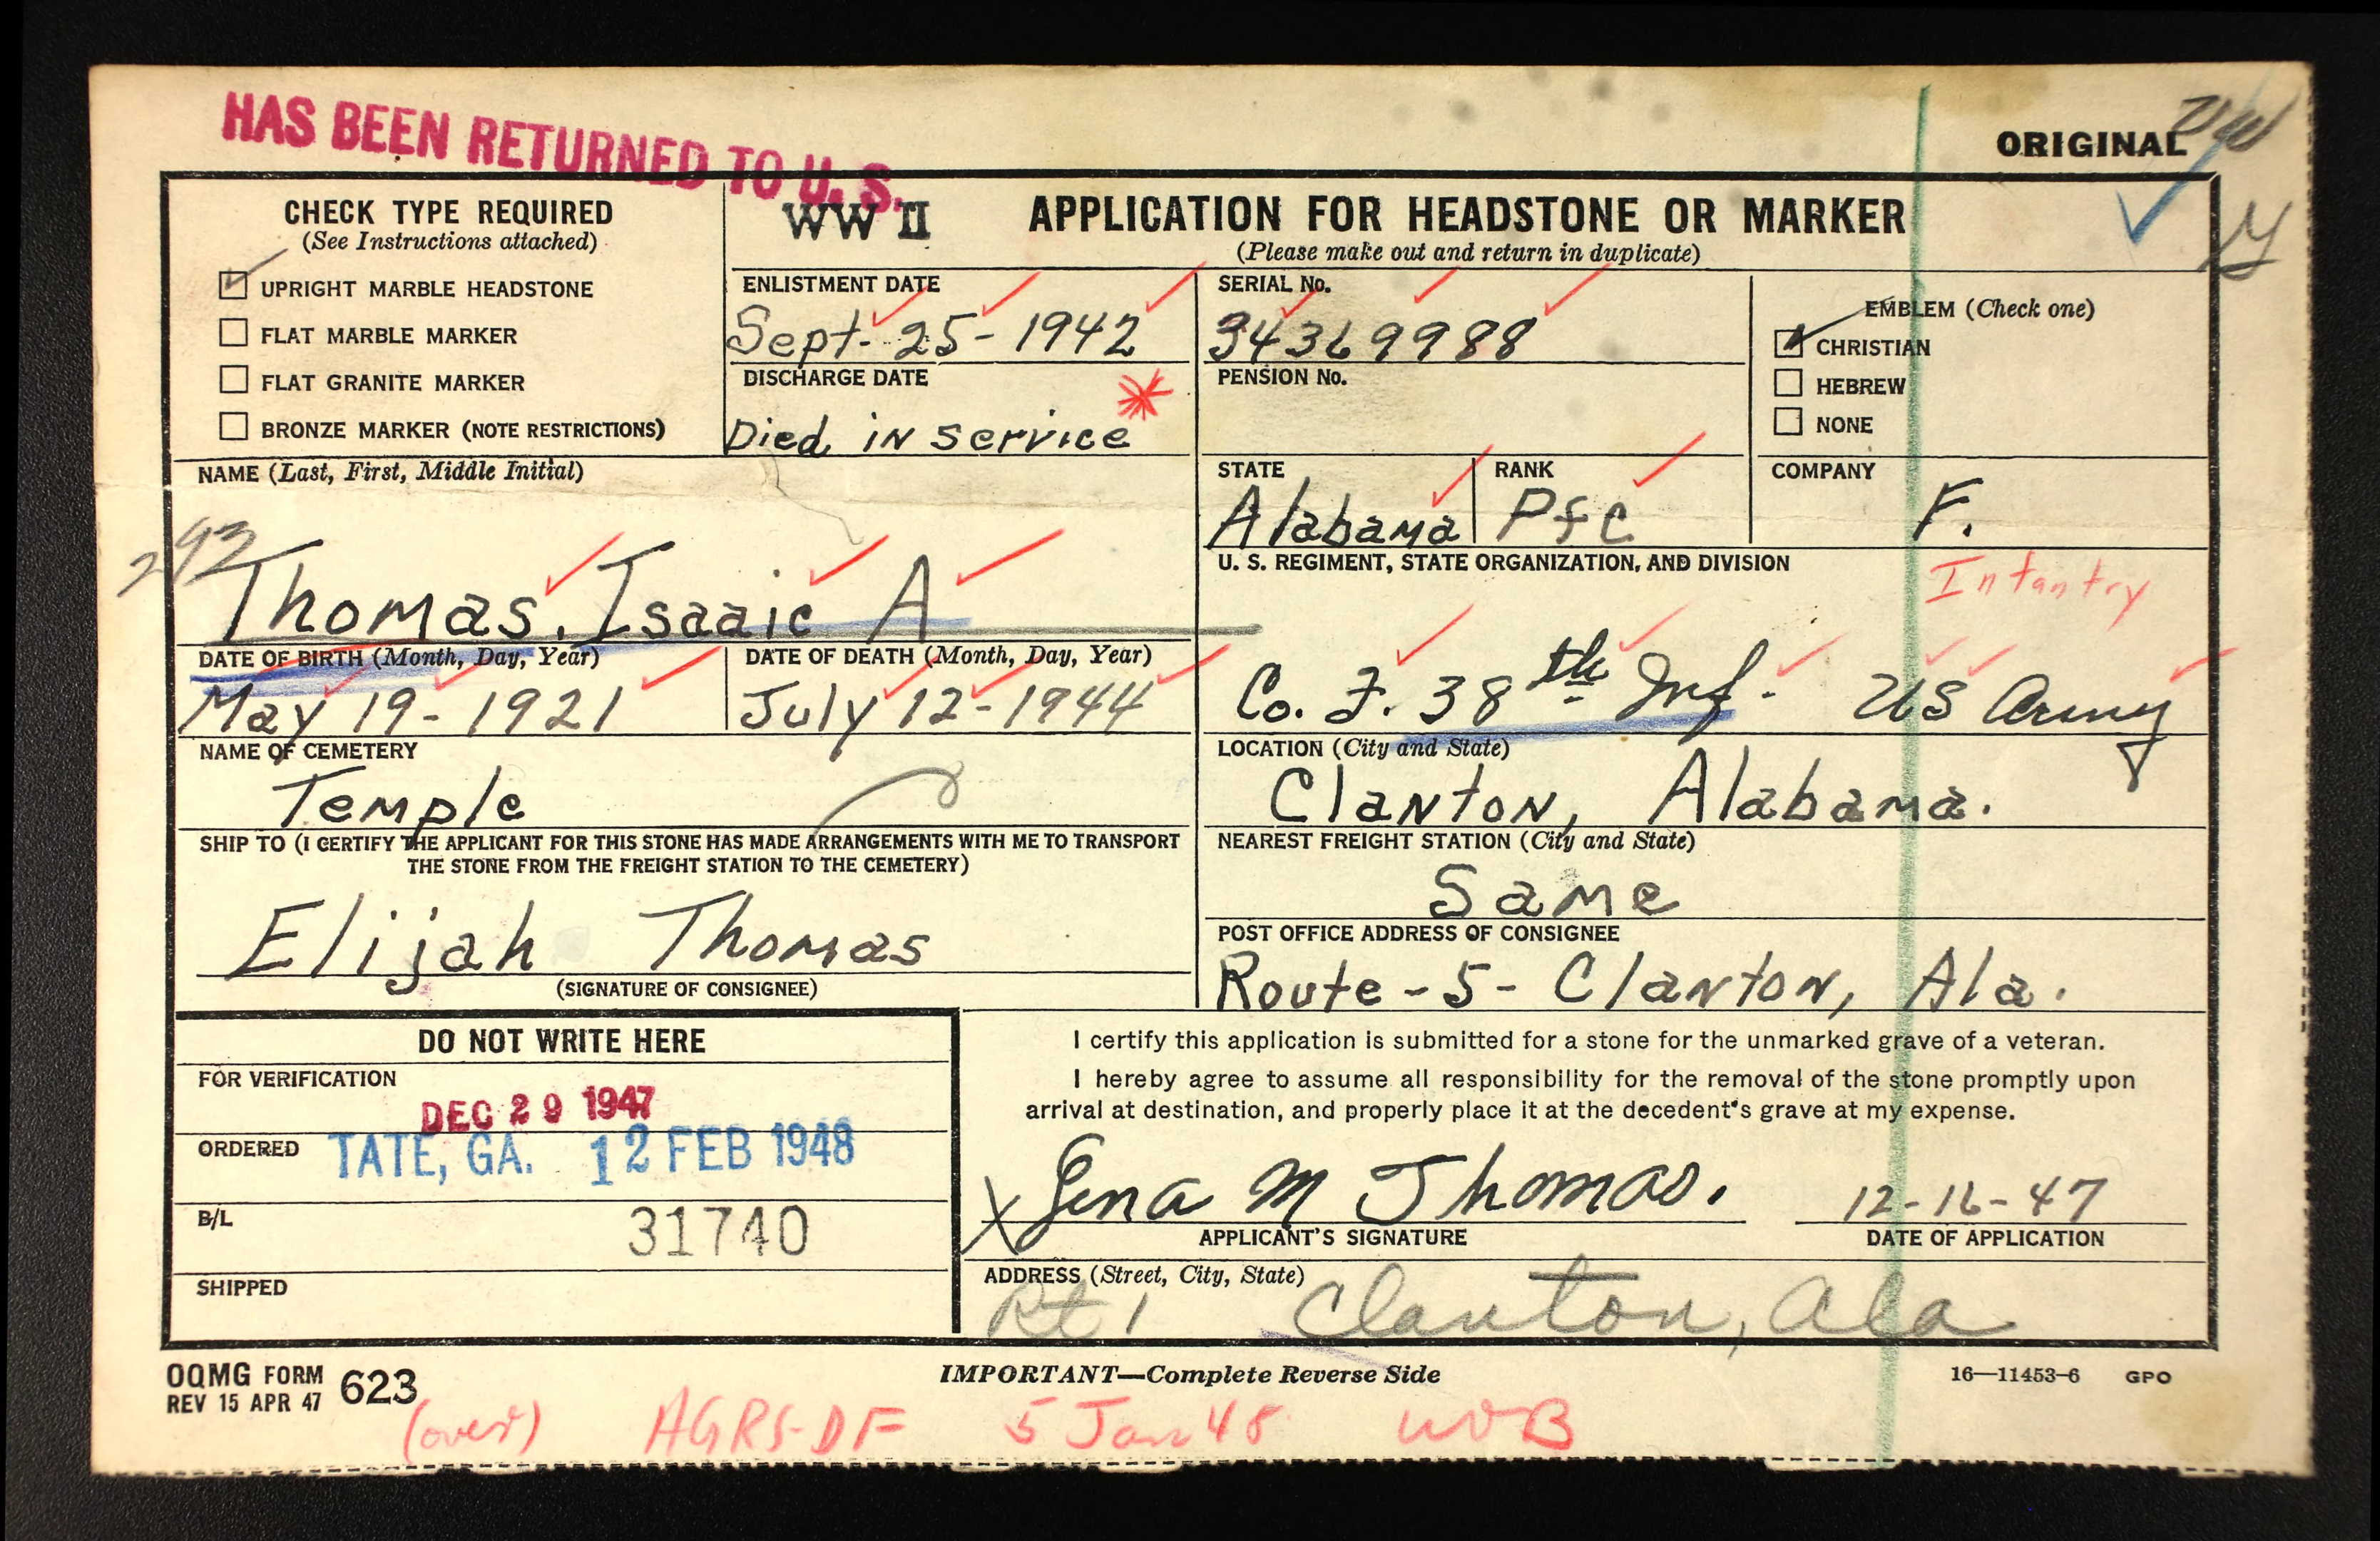 HAS BEEN RETURNED TO U. S.
ORIGINAL
CHECK TYPE REQUIRED
(See Instructions attached)
UPRIGHT MARBLE HEADSTONE
FLAT MARBLE MARKER
FLAT GRANITE MARKER
BRONZE MARKER (NOTE RESTRICTIONS)
WW II
APPLICATION FOR HEADSTONE OR MARKER
(Please make out and return in duplicate)
ENLISTMENT DATE
Sept- 25- 1942
SERIAL No.
34369988
EMBLEM (Check one)
CHRISTIAN
HEBREW
NONE
DISCHARGE DATE
Died in service
PENSION No.
NAME (Last, First, Middle Initial)
292
Thomas, Isaaic A
STATE
Alabama
RANK
Pfc
COMPANY
F.
U. S. REGIMENT, STATE ORGANIZATION, AND DIVISION
Infantry
Co. F. 38th Inf. US Army
DATE OF BIRTH (Month, Day, Year)
May 19- 1921
DATE OF DEATH (Month, Day, Year)
July 12- 1944
NAME OF CEMETERY
Temple
LOCATION (City and State)
Clanton, Alabama.
SHIP TO (I CERTIFY THE APPLICANT FOR THIS STONE HAS MADE ARRANGEMENTS WITH ME TO TRANSPORT
THE STONE FROM THE FREIGHT STATION TO THE CEMETERY)
Elijah Thomas
(SIGNATURE OF CONSIGNEE)
NEAREST FREIGHT STATION (City and State)
Same
POST OFFICE ADDRESS OF CONSIGNEE
Route - 5 - Clanton, Ala.
DO NOT WRITE HERE
FOR VERIFICATION
DEC 29 1947
ORDERED
TATE, GA. 12 FEB 1948
B/L
31740
SHIPPED
I certify this application is submitted for a stone for the unmarked grave of a veteran.
I hereby agree to assume all responsibility for the removal of the stone promptly upon
arrival at destination, and properly place it at the decedent's grave at my expense.
X Gena M Thomas.
APPLICANT'S SIGNATURE
12-16-47
DATE OF APPLICATION
ADDRESS (Street, City, State)
Rt 1 Clanton, Ala
OQMG FORM 623
REV 15 APR 47
IMPORTANT—Complete Reverse Side
16—11453-6 GPO
(over) AGRS-DF 5 Jan 48 WVB